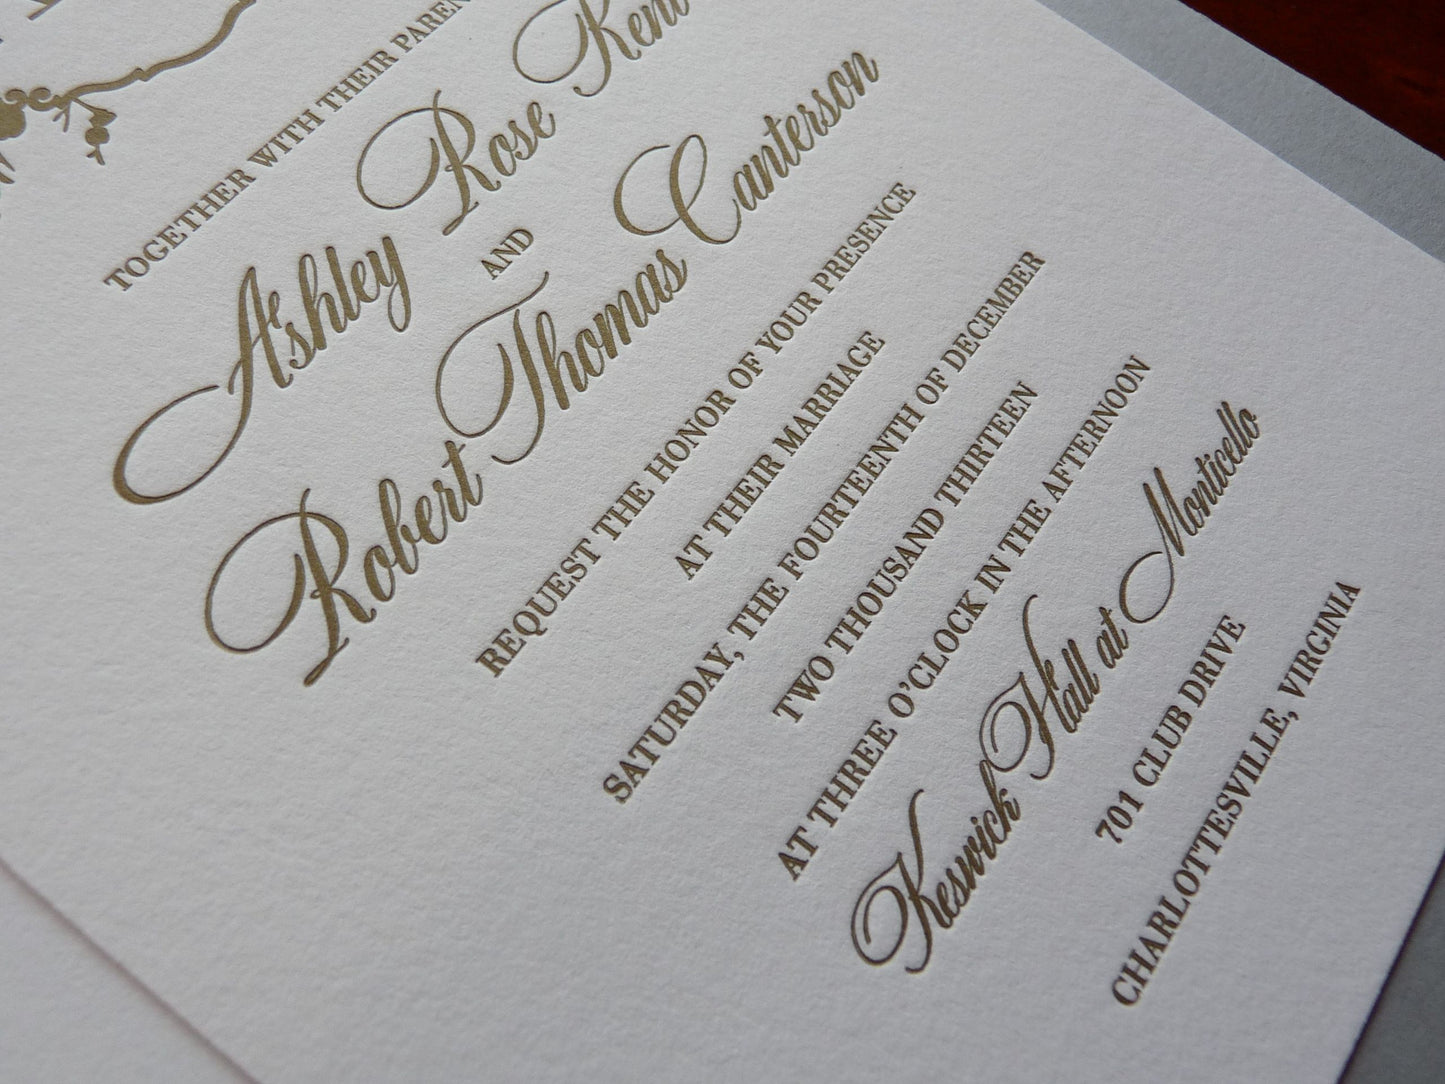 TOGETHER WITH THEIR
Ashley Rose
AND
Robert Thomas Canterson
REQUEST THE HONOR OF YOUR PRESENCE
AT THEIR MARRIAGE
SATURDAY, THE FOURTEENTH OF DECEMBER
TWO THOUSAND THIRTEEN
AT THREE O'CLOCK IN THE AFTERNOON
Keswick Hall at Monticello
701 CLUB DRIVE
CHARLOTTESVILLE, VIRGINIA